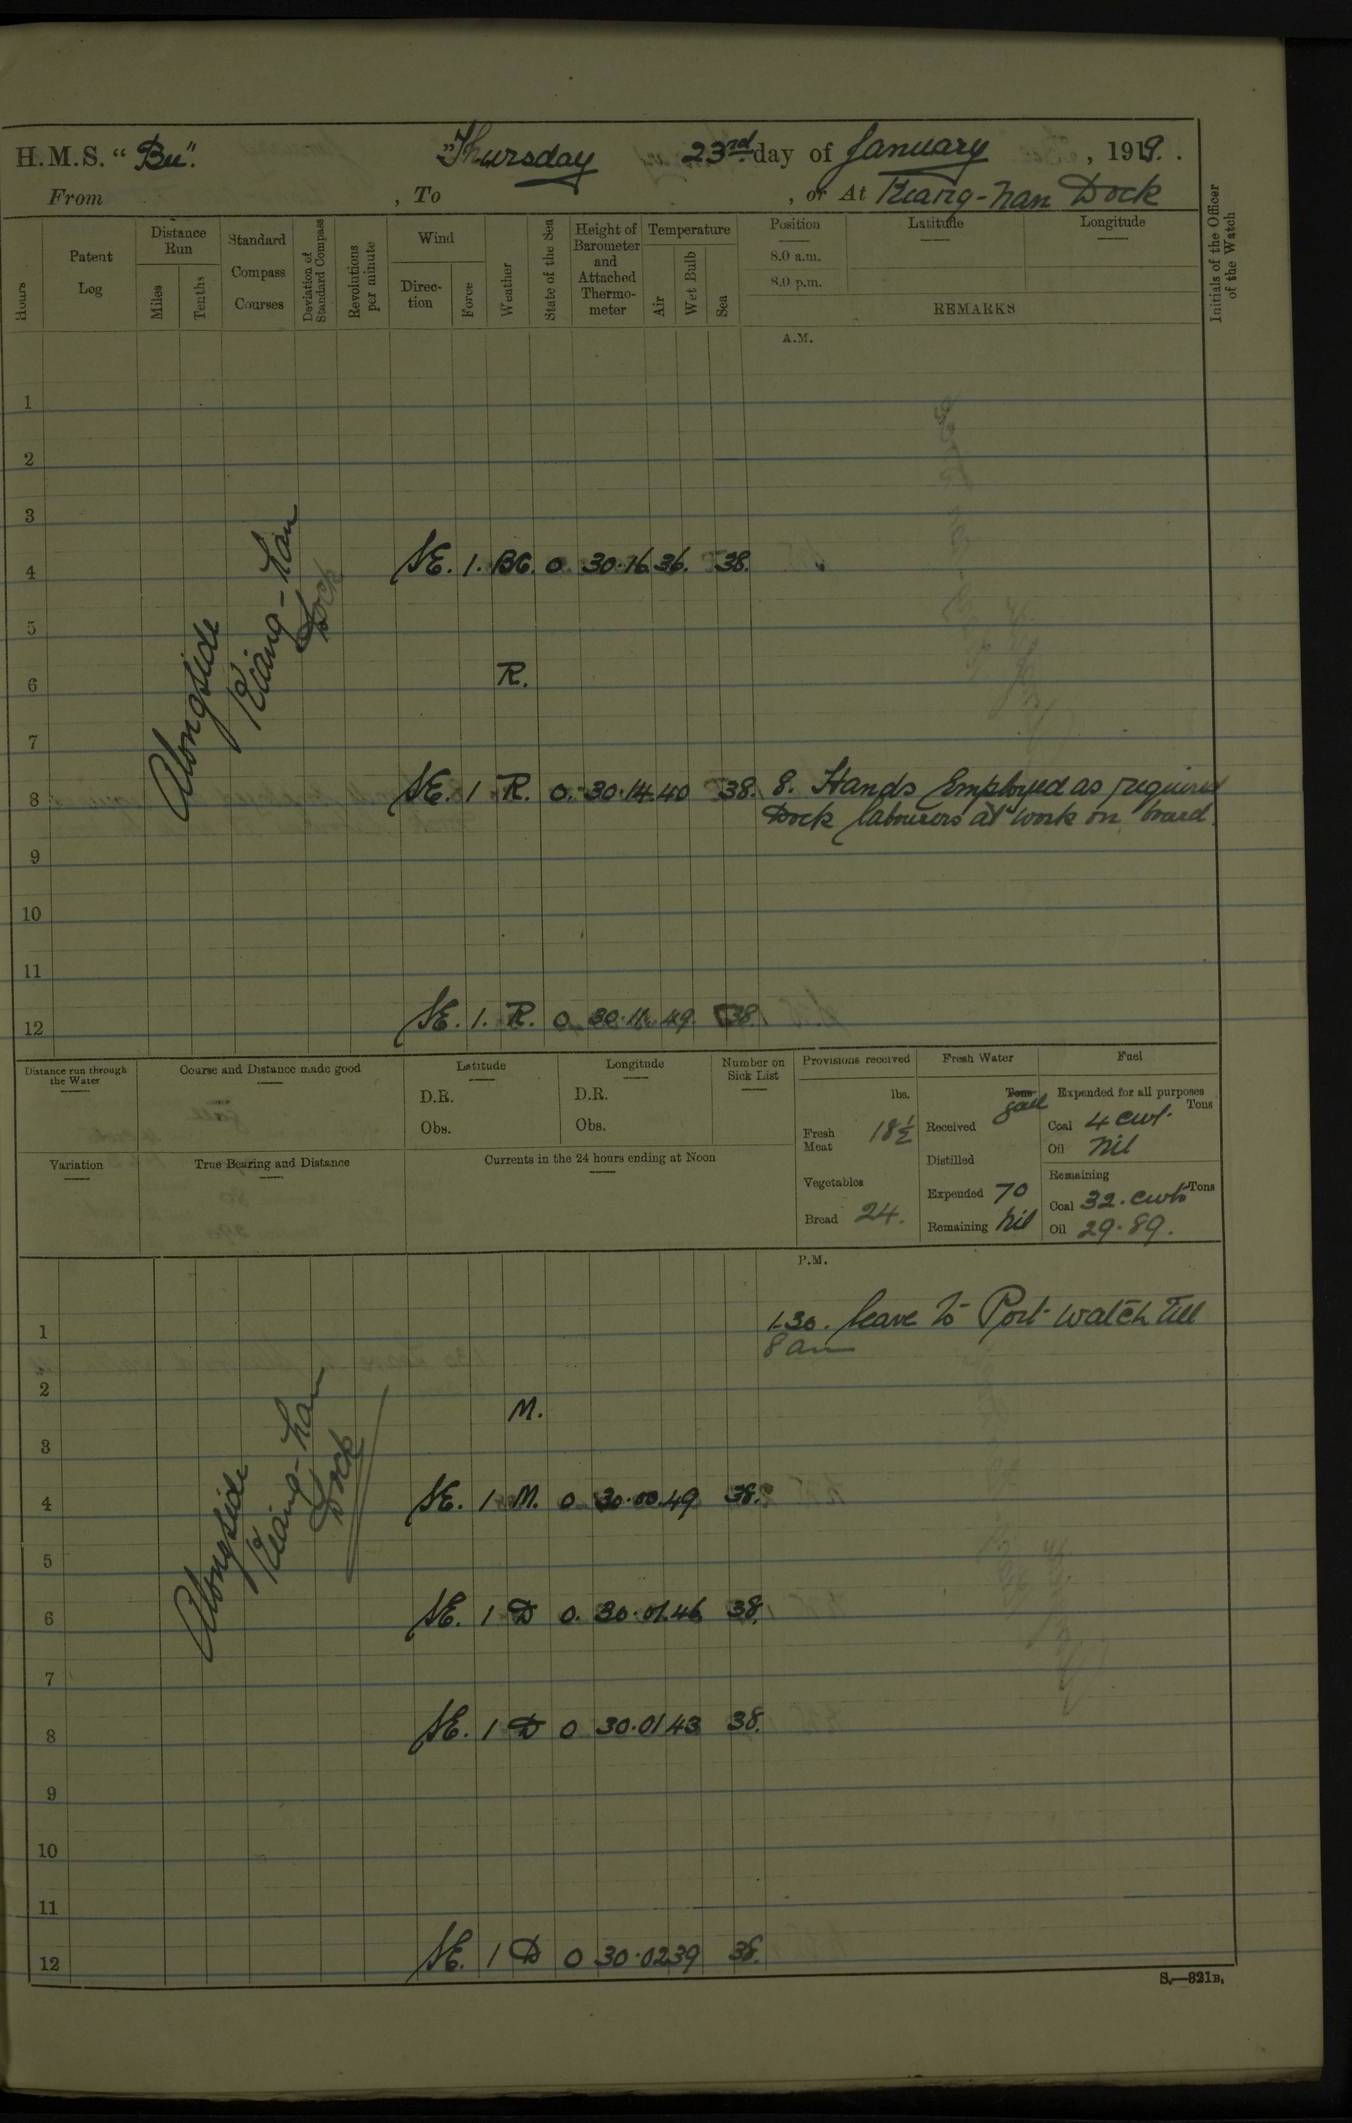 H.M.S. "Bee". Thursday 23rd day of January, 1919.
From , To , or At Kiang-nan Dock
Hours
Patent Log
Distance Run
Miles
Tenths
Standard Compass Courses
Deviation of Standard Compass
Revolutions per minute
Wind
Direction
Force
Weather
State of the Sea
Height of Barometer and Attached Thermometer
Temperature
Air
Wet Bulb
Sea
Position Latitude Longitude
8.0 a.m.
8.0 p.m.
REMARKS
Initials of the Officer of the Watch
A.M.
1
2
3
4 SE. 1. BC. 0. 30.16 36. 38.
Alongside Kiang-nan Dock
5
6 R.
7
8 SE. 1 R. 0. 30.14 40 38. 8. Hands Employed as required
Dock labourers at work on board.
9
10
11
12 SE. 1. R. 0. 30.11. 49. 38.
Distance run through the Water
Course and Distance made good
Latitude
D.R.
Obs.
Longitude
D.R.
Obs.
Number on Sick List
Variation
True Bearing and Distance
Currents in the 24 hours ending at Noon
Provisions received
lbs.
Fresh Meat 18½
Vegetables
Bread 24.
Fresh Water
Tons gall
Received
Distilled
Expended 70
Remaining Nil
Fuel
Expended for all purposes
Tons
Coal 4 cwt.
Oil Nil
Remaining
Tons
Coal 32. cwts
Oil 29.89.
P.M.
1 1.30. leave to Port watch till
8 am
2
M.
3
4 SE. 1 M. 0 30.00. 49. 38.
Alongside Kiang-nan Dock
5
6 SE. 1 D 0. 30.01. 46 38.
7
8 SE. 1 D 0 30.01 43 38.
9
10
11
12 SE. 1 D 0 30.02 39 38.
S.—321B.